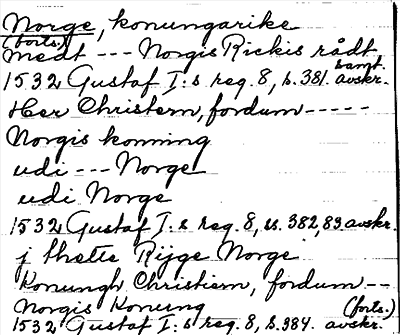 Norge, konungarike
(forts.)
medt --- Norgis Rickis rådt,
1532 Gustaf I:s reg. 8, s. 381. samt. avskr.
Her Christiern, fordum -----
Norgis konning
udi --- Norge
udi Norge
1532 Gustaf I:s reg. 8, ss. 382, 83 avskr.
j thette Rijge Norge
Konungh Christiern, fordum --
Norgis Konung (forts.)
1532 Gustaf I:s reg. 8, s. 384. avskr.